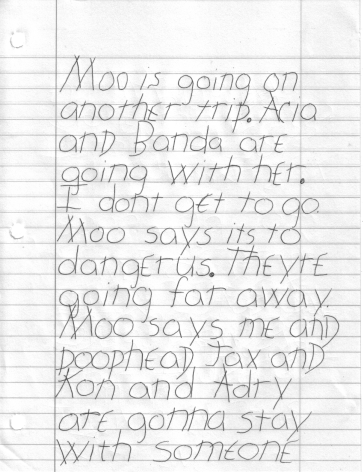 Moo is going on
another trip. Acia
and Banda are
going with her.
I dont get to go
Moo says its to
dangerus. Theyre
going far away.
Moo says me and
poophead Jax and
Kon and Adry
are gonna stay
with someone